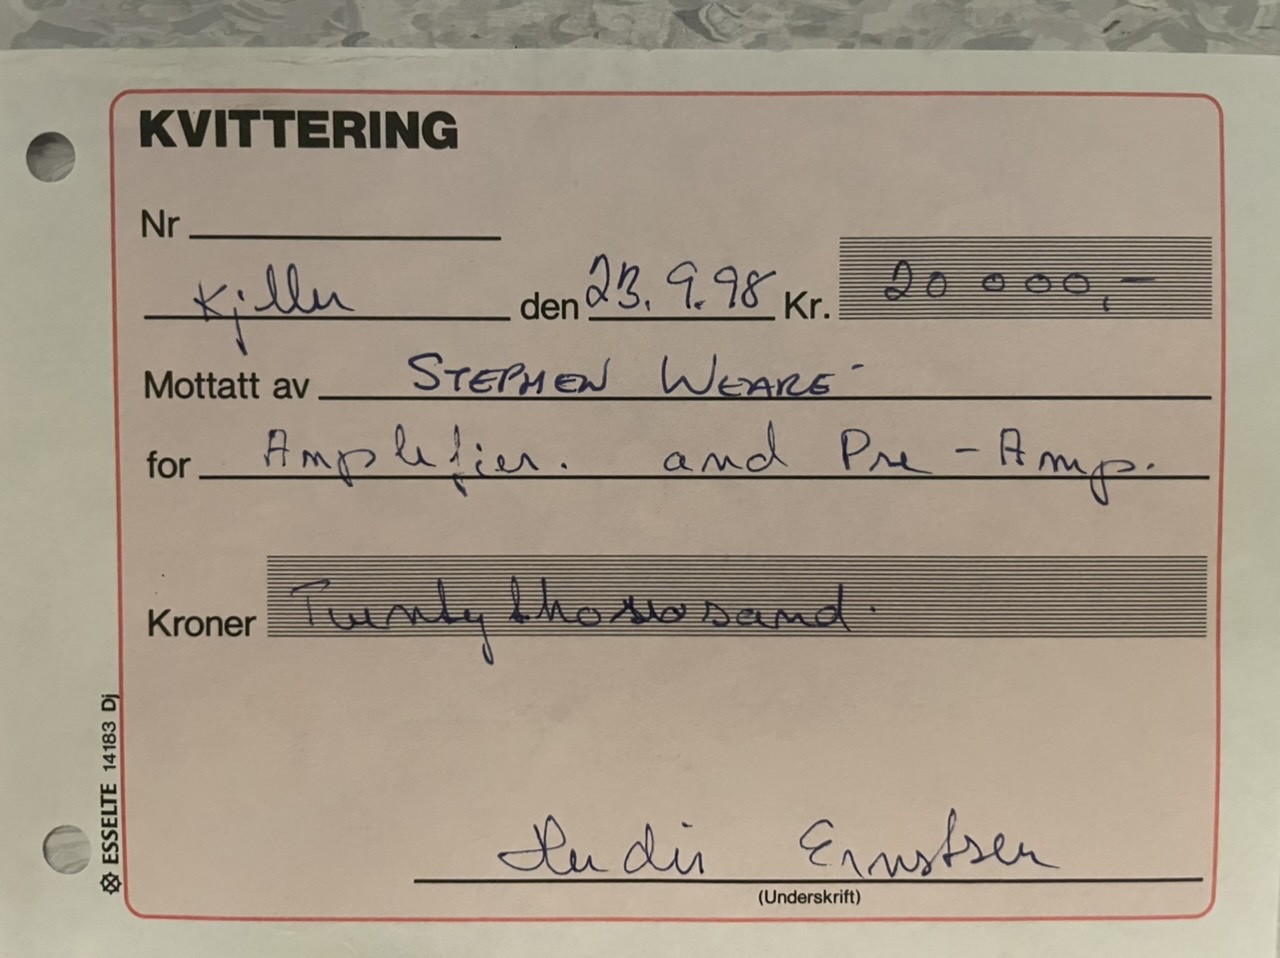 KVITTERING
Nr
Kjeller den 23.9.98 Kr. 20 000,-
Mottatt av STEPHEN WEARE
for Amplefier. and Pre-Amp.
Kroner Twenty thousand.
Ernstsen
(Underskrift)
ESSELTE 14183 Dj